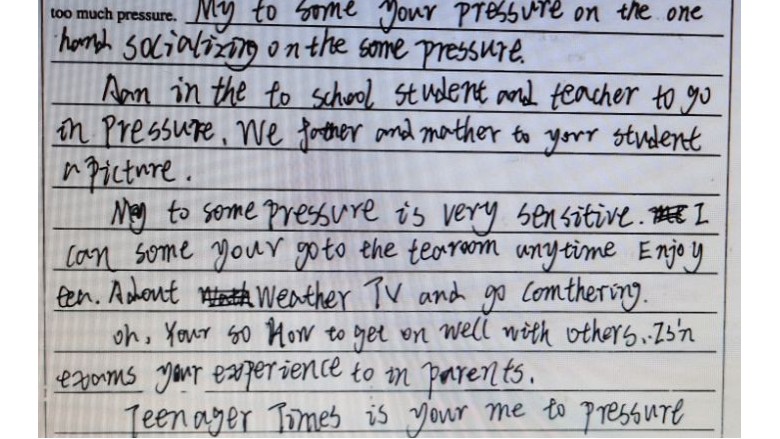 too much pressure. My to some your pressure on the one
hand socializing on the some pressure.
Aan in the to school student and teacher to go
in pressure. We father and mather to yorr student
picture.
My to some pressure is very sensitive. I
can some your goto the tearoom anytime Enjoy
teen. About Weather TV and go comthering.
oh, Your so How to get on well with others. Is'n
exams your experience to in parents.
Teenager Times is your me to pressure